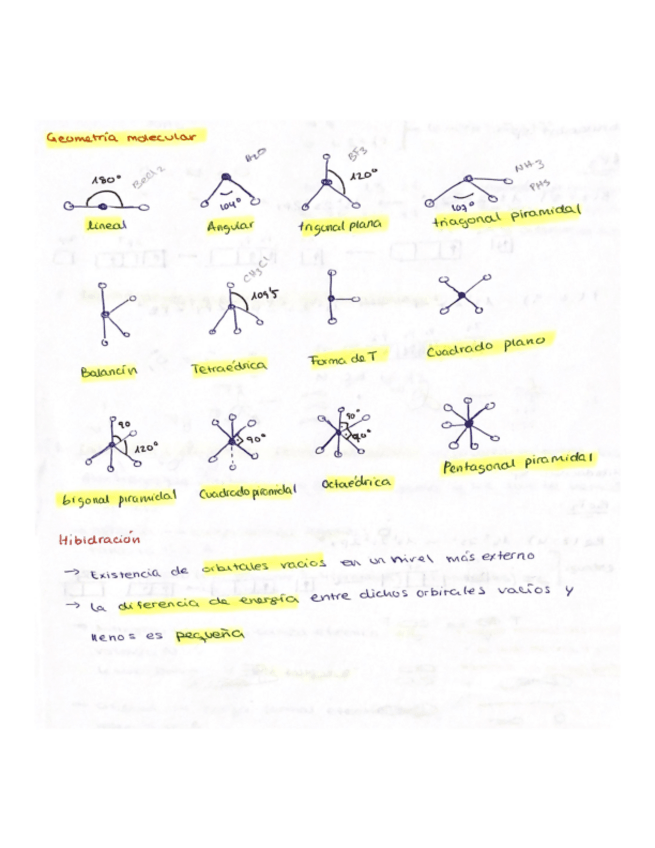 Geometría molecular
180° BeCl2
H2O
104°
BF3
120°
NH3
PH3
107°
Lineal
Angular
trigonal plana
triagonal piramidal
CH3Cl
109'5
Balancín
Tetraédrica
Forma de T
Cuadrado plano
90
120°
90°
90°
90°
bigonal piramidal
Cuadrado piramidal
Octaédrica
Pentagonal piramidal
Hibidración
→ Existencia de orbitales vacíos en un nivel más externo
→ La diferencia de energía entre dichos orbitales vacíos y
llenos es pequeña